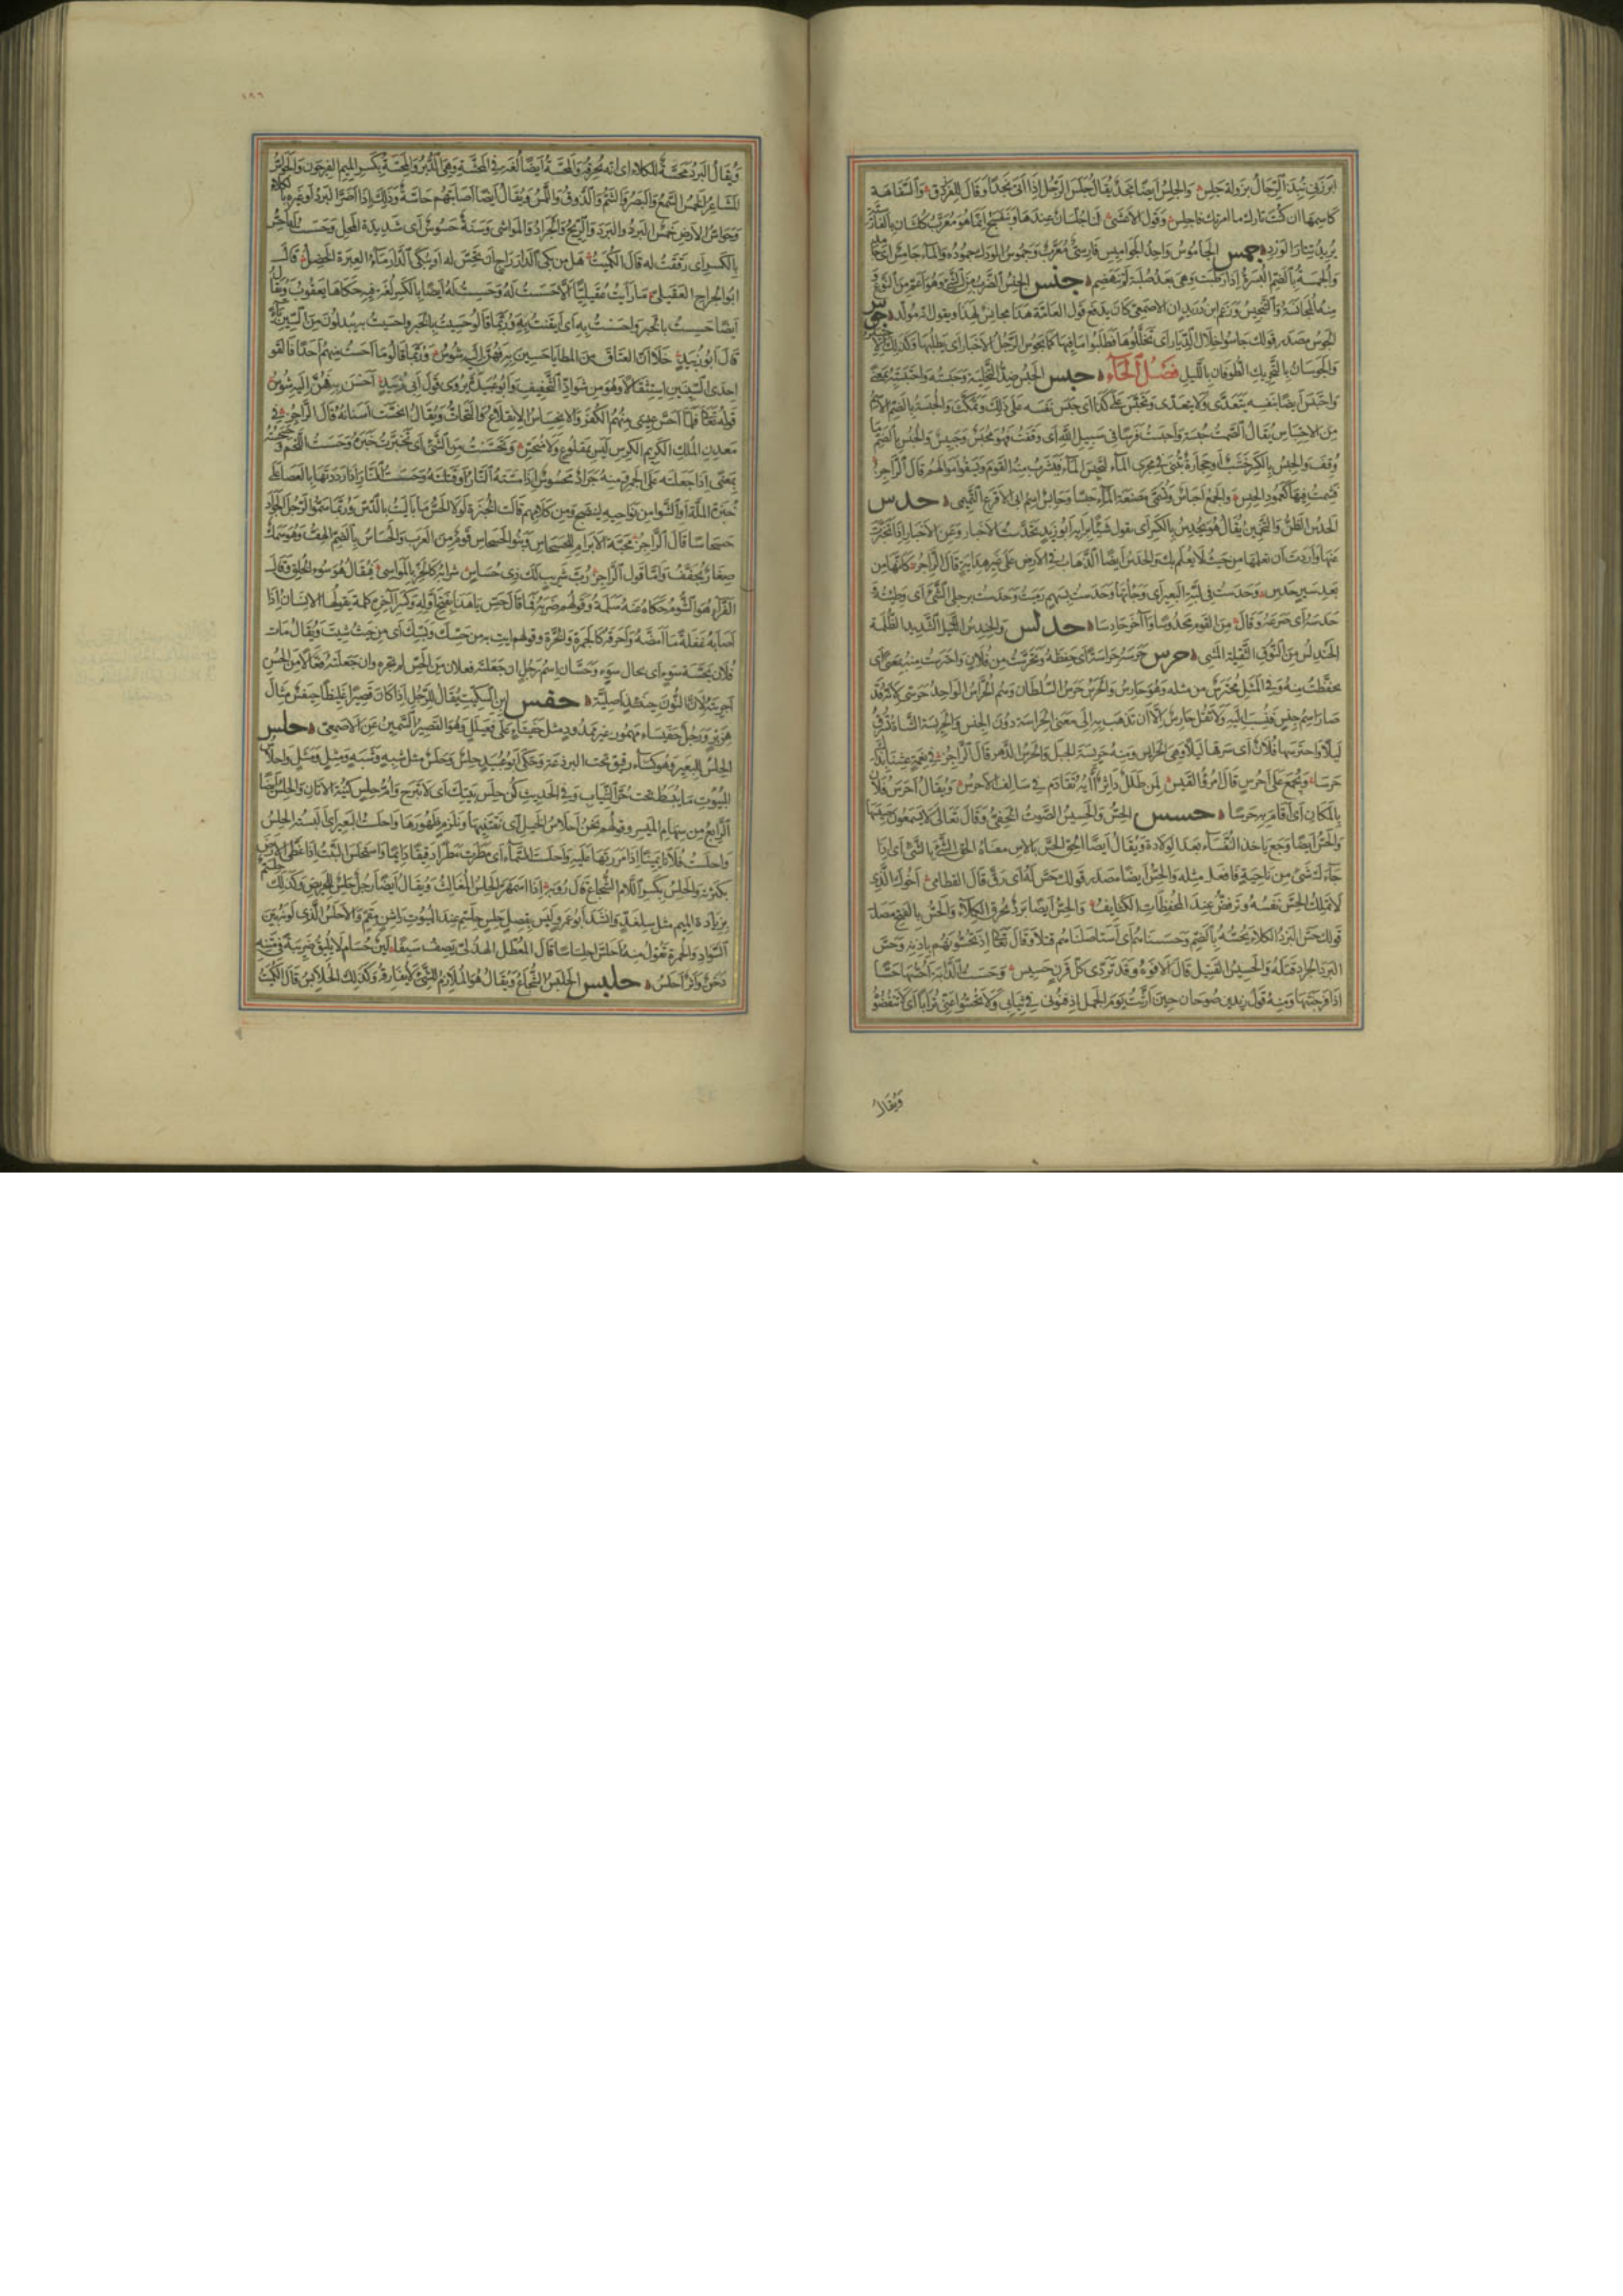 وَالجِلسُ أيضا نجد يقال جلس الرجل إذا أتى نجدا وقال للفرزدق والسفاهة
كاسمها ان كنت تارك ما امرتك فاجلس وقول الاعشى لنا جلسان عندها وبنفسج انما هو معرب كلشان بالفارسية
يريد نثار الورد جمس الجاموس واحد الجواميس فارسي معرب وجموس الودك جموده والماء جامس اي جامد
والجمسة بالضم البسرة إذا ارطبت وهي بعد صلبة لم تنهضم جنس الجنس الضرب من الشيء وهو اعم من النوع و
منه المجانسة والتجنيس وزعم ابن دريد ان الاصمعي كان يدفع قول العامة هذا مجانس لهذا ويقول انه مولد جوس
الجوس مصدر قولك جاسوا خلال الديار اي تخللوها فطلبوا ما فيها كما يجوس الرجل الاخبار اي يطلبها وكذلك الاجتياس
والجوسان بالتحريك الطوفان بالليل فصل الحاء حبس الحبس ضد التخلية وحبسته واحتبسته بمعنى
واحتبس ايضا بنفسه يتعدى ولا يتعدى وتحبس على كذا اي حبس نفسه على ذلك والحبسة بالضم الاسم
من الاحتباس يقال الصمت حبسة واحبست فرسا في سبيل الله اي وقفت فهو محبس وحبيس والحبس بالضم ما
وقف والحبس بالكسر خشب او حجارة تبنى في مجرى الماء لتحبس الماء فيشرب منه القوم ويسقوا اموالهم قال الراجز
فشمت فيها كعمود الحبس والجمع احباس وتسمى مصنعة الماء حبسا وحابس اسم ابي الاقرع التميمي حدس
الحدس الظن والتخمين يقال هو يحدس بالكسر اي يقول شيئا برأيه ابو زيد تحدست الاخبار وعن الاخبار اذا تخبرت
عنها واردت ان تعلمها من حيث لا يعلم بك والحدس ايضا الذهاب في الارض على غير هداية قال الراجز كانها من
بعد سير حدس وحدست في لبة البعير اي وجأتها وحدست بسهم رميت وحدست برجلي الشيء اي وطئته
حدسه اي صرعه وقال من القوم محدوسا وآخر حادسا حدلس والحندس الليل الشديد الظلمة
الحندلس من النوق الثقيلة المشي حرس حرسه حراسة اي حفظه وتحرست من فلان واحترست منه بمعنى اي
تحفظت منه وفي المثل محترس من مثله وهو حارس والحرس حرس السلطان وهم الحراس الواحد حرسي لانه قد
صار اسم جنس فنسب اليه ولا تقل حارس الا ان تذهب به الى معنى الحراسة دون الجنس والحريسة الشاة تسرق
ليلا واحترسها فلان اي سرقها ليلا وهي الحرائس ومنه حريسة الجبل والحرس الدهر قال الراجز في نعمة عشنا بذاك
حرسا ويجمع على احرس قال امرؤ القيس لمن طلل داثر آيه تقادم في سالف الاحرس ويقال احرس فلان
بالمكان اي اقام به حرسا حسس الحس والحسيس الصوت الخفي وقال تعالى لا يسمعون حسيسها
والحس ايضا وجع ياخذ النفساء بعد الولادة ويقال ايضا الحق الحس بالاس معناه الحق الشيء بالشيء اي اذا
جاءك شيء من ناحية فافعل مثله والحس ايضا مصدر قولك حس له اي رق قال القطامي اخوك الذي
لا تملك الحس نفسه وترفض عند المحفظات الكتائف والحس ايضا برد يحرق الكلاء والحس بالفتح مصدر
قولك حس البرد الكلاء يحسه بالضم وحسسناهم اي استاصلناهم قتلا وقال تعالى اذ تحسونهم باذنه وحس
البرد الجراد قتله والحسيس القتيل قال الافوه وقد تردى كل قرن حسيس وحسست الدابة احسها حسا
اذا فرجنتها ومنه قول زيد بن صوحان حين ارتث يوم الجمل ادفنوني في ثيابي ولا تحسوا عني ترابا اي لا تنفضوا
ويقال
١٨٦
ويقال البرد محسة للكلاء اي انه يحرقه والمحسة ايضا لغة في المحشة وهي الدبر والمحسة بكسر الميم الفرجون والحواس
المشاعر الخمس السمع والبصر والشم والذوق واللمس ويقال ايضا اصابتهم حاسة وذلك اذا اضر البرد او غيره بالكلاء
وحواس الارض خمس البرد والبرد والريح والجراد والمواشي وسنة حسوس اي شديدة المحل وحسست له احس
بالكسر اي رققت له قال الكميت هل من بكى الدار راج ان تحس له او يبكي الدار ماء العبرة الخضل قال
ابو الجراح العقيلي ما رايت عقيليا الا حسست له وحسست له ايضا بالكسر لغة فيه حكاها يعقوب ويقال
ايضا حسست بالخبر واحسست به اي ايقنت به وربما قالوا حسيت بالخبر واحسيت به يبدلون من السين ياء
قال ابو زبيد خلا ان العتاق من المطايا حسين به فهن اليه شوس وربما قالوا ما احست منهم احدا فالقوا
احدى السينين استثقالا وهو من شواذ التخفيف وابو عبيدة يروي قول ابي زبيد احسن به فهن اليه شوس
قوله تعالى فلما احس عيسى منهم الكفر والانحساس الانقلاع والتحات ويقال انحست اسنانه قال الراجز في
معدن الملك الكريم الكرس ليس بمقلوع ولا منحس وتحسست من الشيء اي تخبرت خبره وحسست اللحم وحسحسته
بمعنى اذا جعلته على الجمر ومنه جراد محسوس اذا مسته النار او قتلته وحسست النار اذا رددتها بالعصا على
خبزة الملة او الشواء من نواحيه لينضج ومن كلامهم قالت الخبزة لولا الحس ما باليت بالدس وربما سموا الرجل الجواد
حسحاسا قال الراجز محبة الابرام للحسحاس وبنو الحسحاس قوم من العرب والحساس بالضم الهف وهو سمك
صغار يجفف واما قول الراجز رب شريب لك ذي حساس شرابه كالحز بالمواسي فيقال هو سوء الخلق وقال
الفراء هو الشؤم حكاه عنه سلمة وقولهم ضربه فما قال حس يا هذا بفتح اوله وكسر آخره كلمة يقولها الانسان اذا
اصابه غفلة ما امضه واحرقه كالجمرة وقولهم ايت به من حسك وبسك اي من حيث شئت ويقال بات
فلان بحسة سوء اي بحال سوء وحسان اسم رجل ان جعلته فعلان من الحس لم تجره وان جعلته فعالا من الحسن
اجريته لان النون حينئذ اصلية حفس ابن السكيت يقال للرجل اذا كان قصيرا غليظا حيفس مثال
هزبر ورجل حفيسأ مهموز غير ممدود مثل حفيتأ على فعيلل وهو القصير السمين عن الاصمعي حلس
الحلس للبعير وهو كساء رقيق تحت البرذعة وحكى ابو عبيد حلس وحلس مثل شبه وشبه ومثل ومثل واحلاس
البيوت ما يبسط تحت حر الثياب وفي الحديث كن حلس بيتك اي لا تبرح وام حلس كنية الاتان والحلس ايضا
الرابع من سهام الميسر وقولهم نحن احلاس الخيل اي نقتنيها ونلزم ظهورها واحلست البعير اي البسته الحلس
واحلست فلانا يمينا اذا امررتها عليه واحلست السماء اي مطرت مطرا دقيقا دائما واستحلس النبت اذا غطى الارض
بكثرته والحلس بكسر اللام الشجاع قال رؤبة اذا اسمهر الحلس المغالث ويقال ايضا رجل حلس للحريص وكذلك حلسم
بزيادة الميم مثل سلغد وانشد ابو عمرو ليس بقصل حلس حلسم عند البيوت راشن مقم والاحلس الذي لونه بين
السواد والحمرة تقول منه احلس احلساسا قال المعطل الهذلي يصف سيفا لين حسام لا يليق ضريبة في متنه
دخن واثر احلس حلبس الحلبس الشجاع ويقال هو الملازم للشيء لا يفارقه وكذلك الحلابس قال الكميت